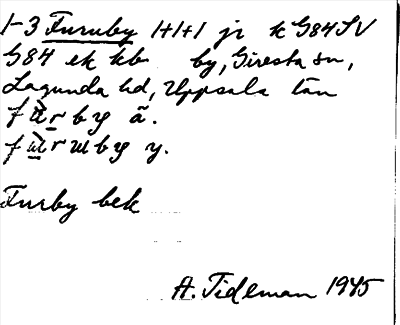 1-3 Furuby 1+1+1 jr k G84SV
G84 ek kb by, Giresta sn,
Lagunda hd, Uppsala län
fùrby ä.
fùrubyg y.
Furby bek
A. Tideman 1945